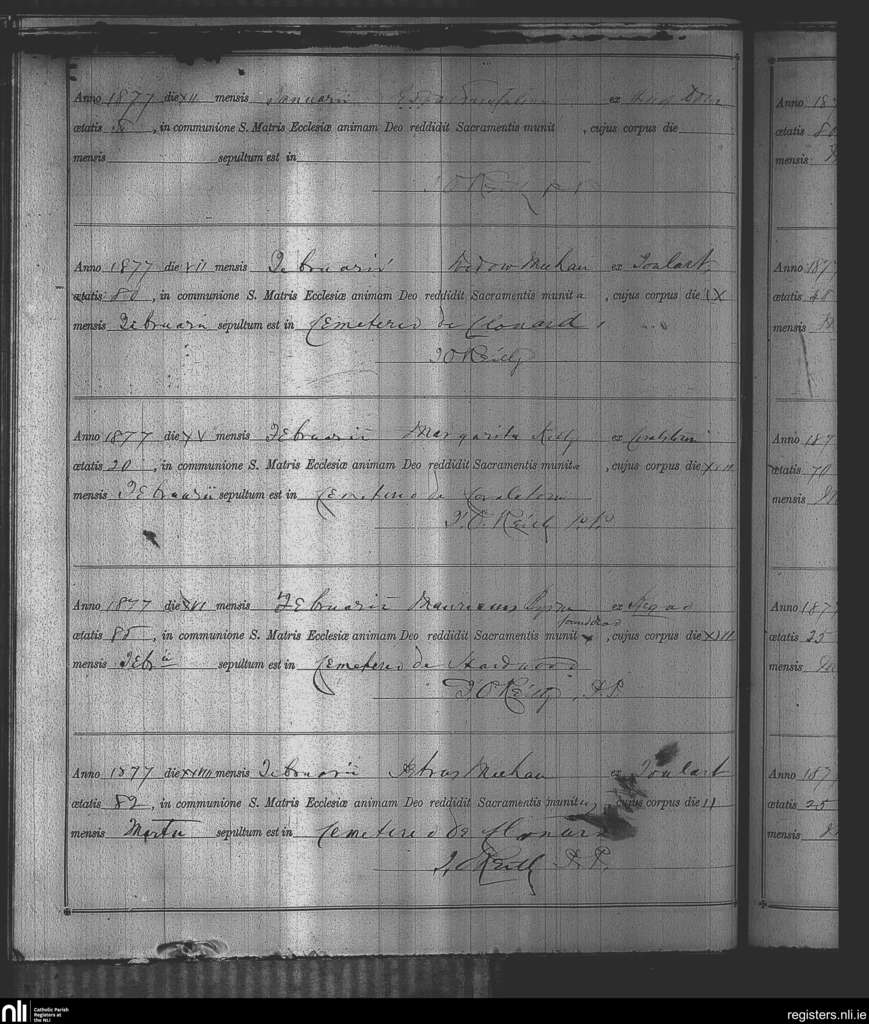 Anno 1877 die XII mensis Januarii ex
ætatis , in communione S. Matris Ecclesiæ animam Deo reddidit Sacramentis munit , cujus corpus die
mensis sepultum est in
J O'Reilly P. P.
Anno 1877 die VII mensis Februarii Widow Meehan ex Toulart,
ætatis 80, in communione S. Matris Ecclesiæ animam Deo reddidit Sacramentis munita , cujus corpus die IX
mensis Februarii sepultum est in Cemeterio de Clonard
J O Reilly
Anno 1877 die XV mensis Februarii Margarita ex
ætatis 20, in communione S. Matris Ecclesiæ animam Deo reddidit Sacramentis munita , cujus corpus die
mensis Februarii sepultum est in Cemeterio de
J. O. Reilly P. P.
Anno 1877 die XVI mensis Februarii Mauricius ex
found dead
ætatis 85, in communione S. Matris Ecclesiæ animam Deo reddidit Sacramentis munit , cujus corpus die XVII
mensis Feb sepultum est in Cemeterio de Hardwood
J. O Reilly, P. P.
Anno 1877 die XXVIII mensis Februarii Petrus Meehan ex Toulart
ætatis 82, in communione S. Matris Ecclesiæ animam Deo reddidit Sacramentis munitu , cujus corpus die II
mensis Martii sepultum est in Cemeterio de Clonard
J. O Reilly P. P.
Anno 18
ætatis 80
mensis
Anno 187
ætatis 48
mensis
Anno 187
ætatis 70
mensis
Anno 187
ætatis 25
mensis
Anno 187
ætatis 25
mensis
nli Catholic Parish Registers at the NLI
registers.nli.ie